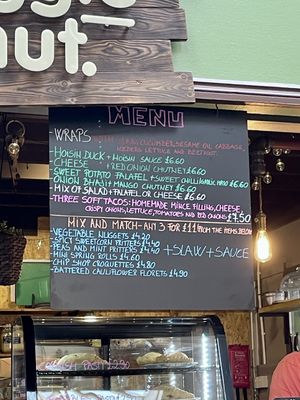 nut.
MENU
WRAPS WITH CUCUMBER, SESAME OIL CABBAGE,
LETTUCE AND BEETROOT.
HOISIN DUCK + HOISIN SAUCE £6.60
CHEESE + RED ONION CHUTNEY £6.60
SWEET POTATO FALAFEL + SWEET CHILLI £6.60
ONION BHAJI + MANGO CHUTNEY £6.60
MIX OF SALAD + FALAFEL OR CHEESE £6.60
THREE SOFT TACOS: HOMEMADE MINCE FILLING, CHEESE,
CRISPY ONIONS, LETTUCE, TOMATOES AND RED ONIONS £7.50
MIX AND MATCH - ANY 3 FOR £11 FROM THE ITEMS BELOW
VEGETABLE NUGGETS
SPICY SWEETCORN FRITTERS
PEAS AND MINT FRITTERS £4.40 + SLAW + SAUCE
MINI SPRING ROLLS £4.60
CHIP SHOP CROQUETTES £4.80
BATTERED CAULIFLOWER FLORETS £4.90